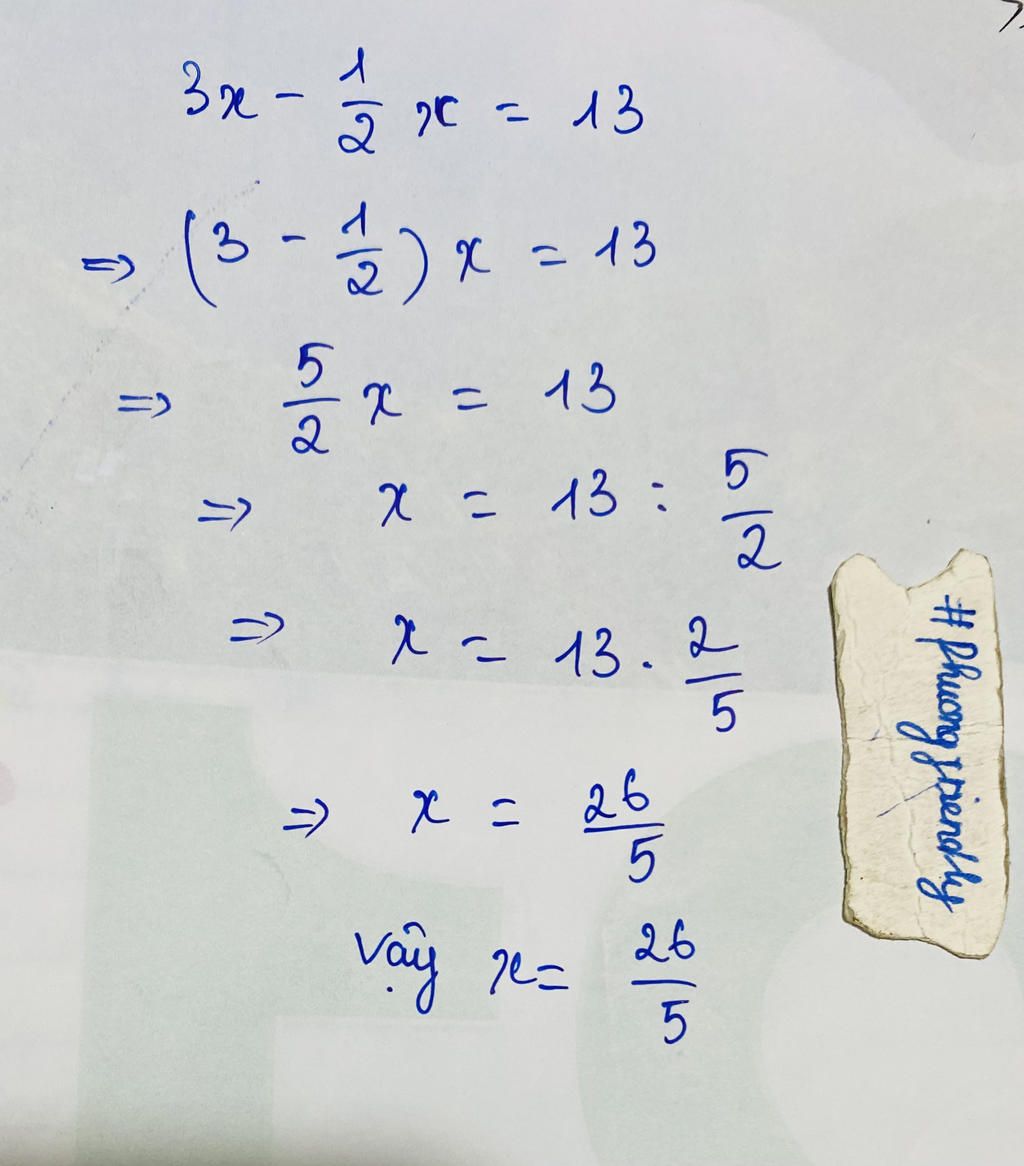 3x - 1/2 x = 13
⇒ (3 - 1/2) x = 13
⇒ 5/2 x = 13
⇒ x = 13 : 5/2
⇒ x = 13 . 2/5
⇒ x = 26/5
Vậy x = 26/5
#phuongfriendly